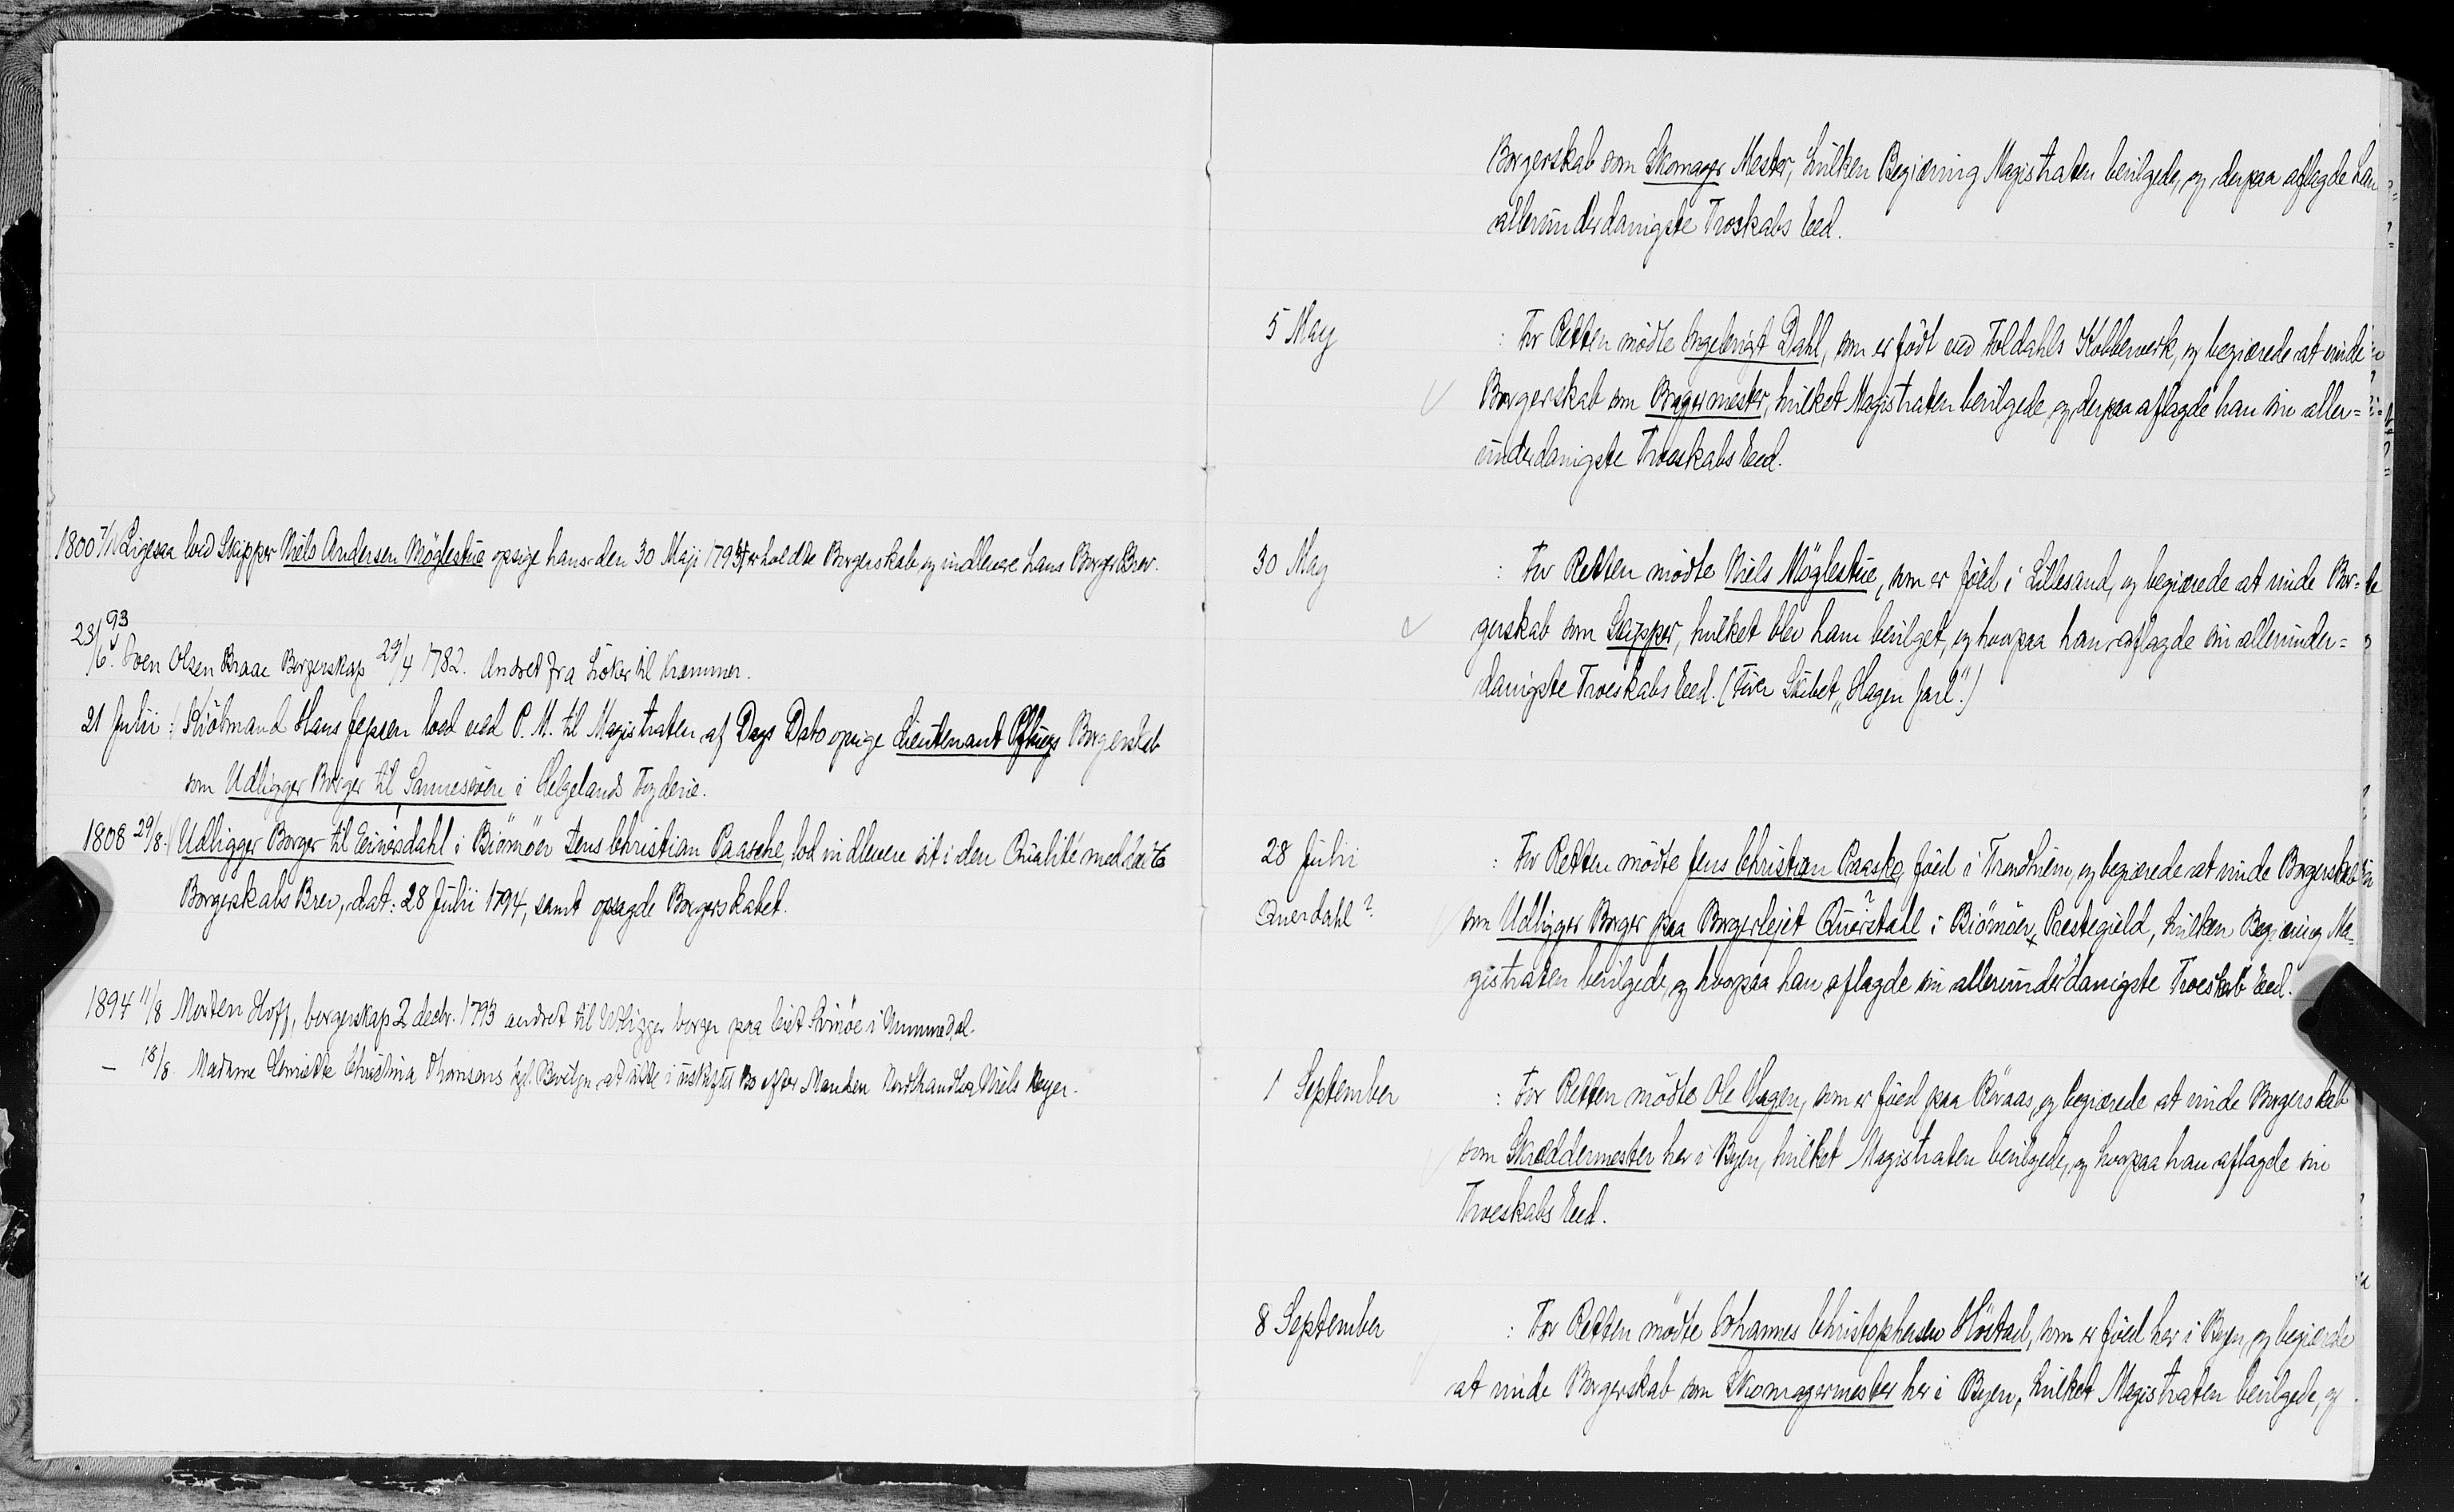 1800 7/1 Ligesaa lod Skipper Niels Andersen Möglestue opsige hans den 30 Maji 1794 erholdte Borgerskab og indlevere hans BorgerBrev.
23/6. 93 Sven Olsen Braae Borgerskap 29/4 1782. Andret fra Höker til Kræmmer.
21 Julii: Kiöbmand Hans Jepsen lod ved P. M. til Magistraten af Dags Dato opsige Lieutenant Pflugs Borgerskab
som Udligger Borger til Sannesöen i Helgelands Fogderie.
1808 29/8. Udligger Borger til Eivirsdahl i Biörnöer Jens Christian Paasche, lod indlevere sit i den Qualité meddeelte
Borgerskabs Brev, dat: 28 Julii 1794, samt opsagde Borgerskabet.
1894 11/8 Morten Hoff, borgerskap 2 decbr. 1793 andret til Udligger borger paa leiet Svinöe i Nummedal.
— 18/8. Madame Henricke Christina Thomsens kgl. Bevilgn. at sidde i uskiftet Bo efter Manden Nordhandler Niels Meyer.
Borgerskab som Skomager Mester, hvilken Begiæring Magistraten bevilgede, og derpaa aflagde han
allerunderdanigste Troskabs Eed.
5 May : For Retten mödte Engebrigt Dahl, som er födt ved Foldahls Kobberverk, og begiærede at vinde
Borgerskab som Bagermester, hvilket Magistraten bevilgede, og derpaa aflagde han sin aller=
underdanigste Troeskabs Eed.
30 May : For Retten mödte Niels Möglestue, som er föed i Lillesand, og begiærede at vinde Bor=
gerskab som Skipper, hvilket blev ham bevilget, og hvorpaa han aflagde sin allerunder=
danigste Troeskabs Eed. (Förer Skibet „Hagen Jarl".)
28 Julii : For Retten mödte Jens Christian Paaske, föed i Trondhiem, og begiærede at vinde Borgerskab
Querdahl? som Udligger Borger paa Borgerlejet Querstahl? i Biörnöer Præstegield, hvilken Begiæring Ma=
gistraten bevilgede, og hvorpaa han aflagde sin allerunderdanigste Troeskab Eed.
1 September : For Retten mödte Ole Hagen, som er föed paa Röraas, og begiærede at vinde Borgerskab
som Skræddermester her i Byen, hvilket Magistraten bevilgede, og hvorpaa han aflagde sin
Troeskabs Eed.
8 September : For Retten mödte Johannes Christophersen Höstad, som er föed her i Byen, og begiærede
at vinde Borgerskab som Skomagermester her i Byen, hvilket Magistraten bevilgede, og